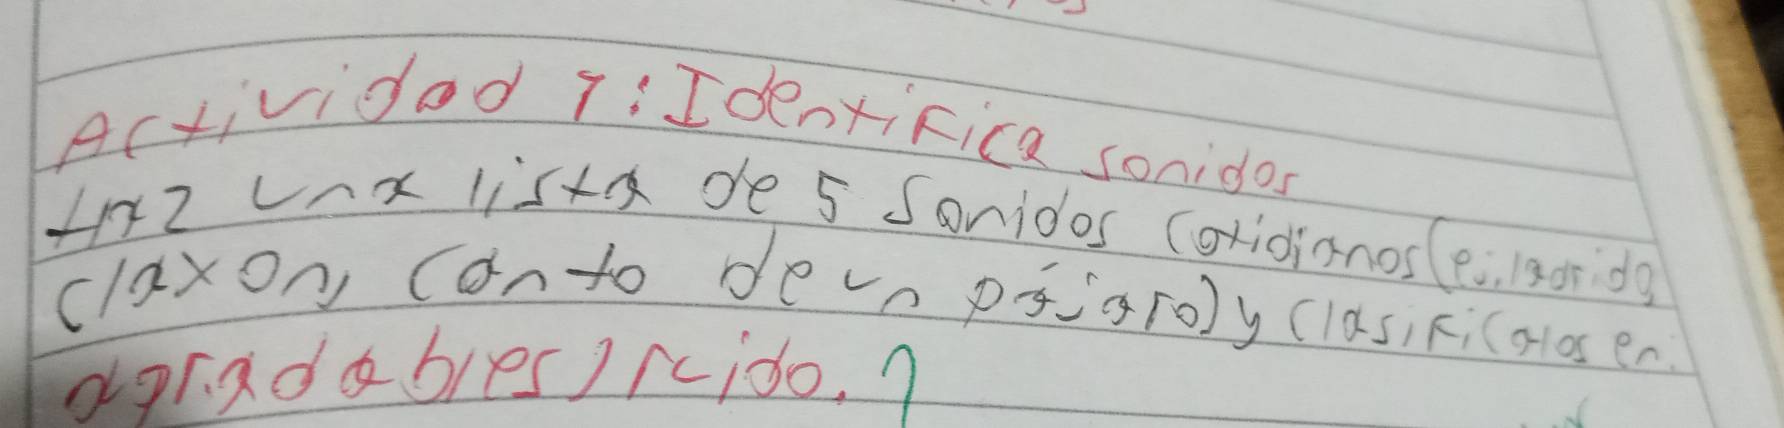 Actividad 1: Identifica sonidos
Haz una lista de 5 Sonidos cotidianos (ej. ladrido,
claxon, canto de un pájaro) y clasificalos en:
agradables) ruido.